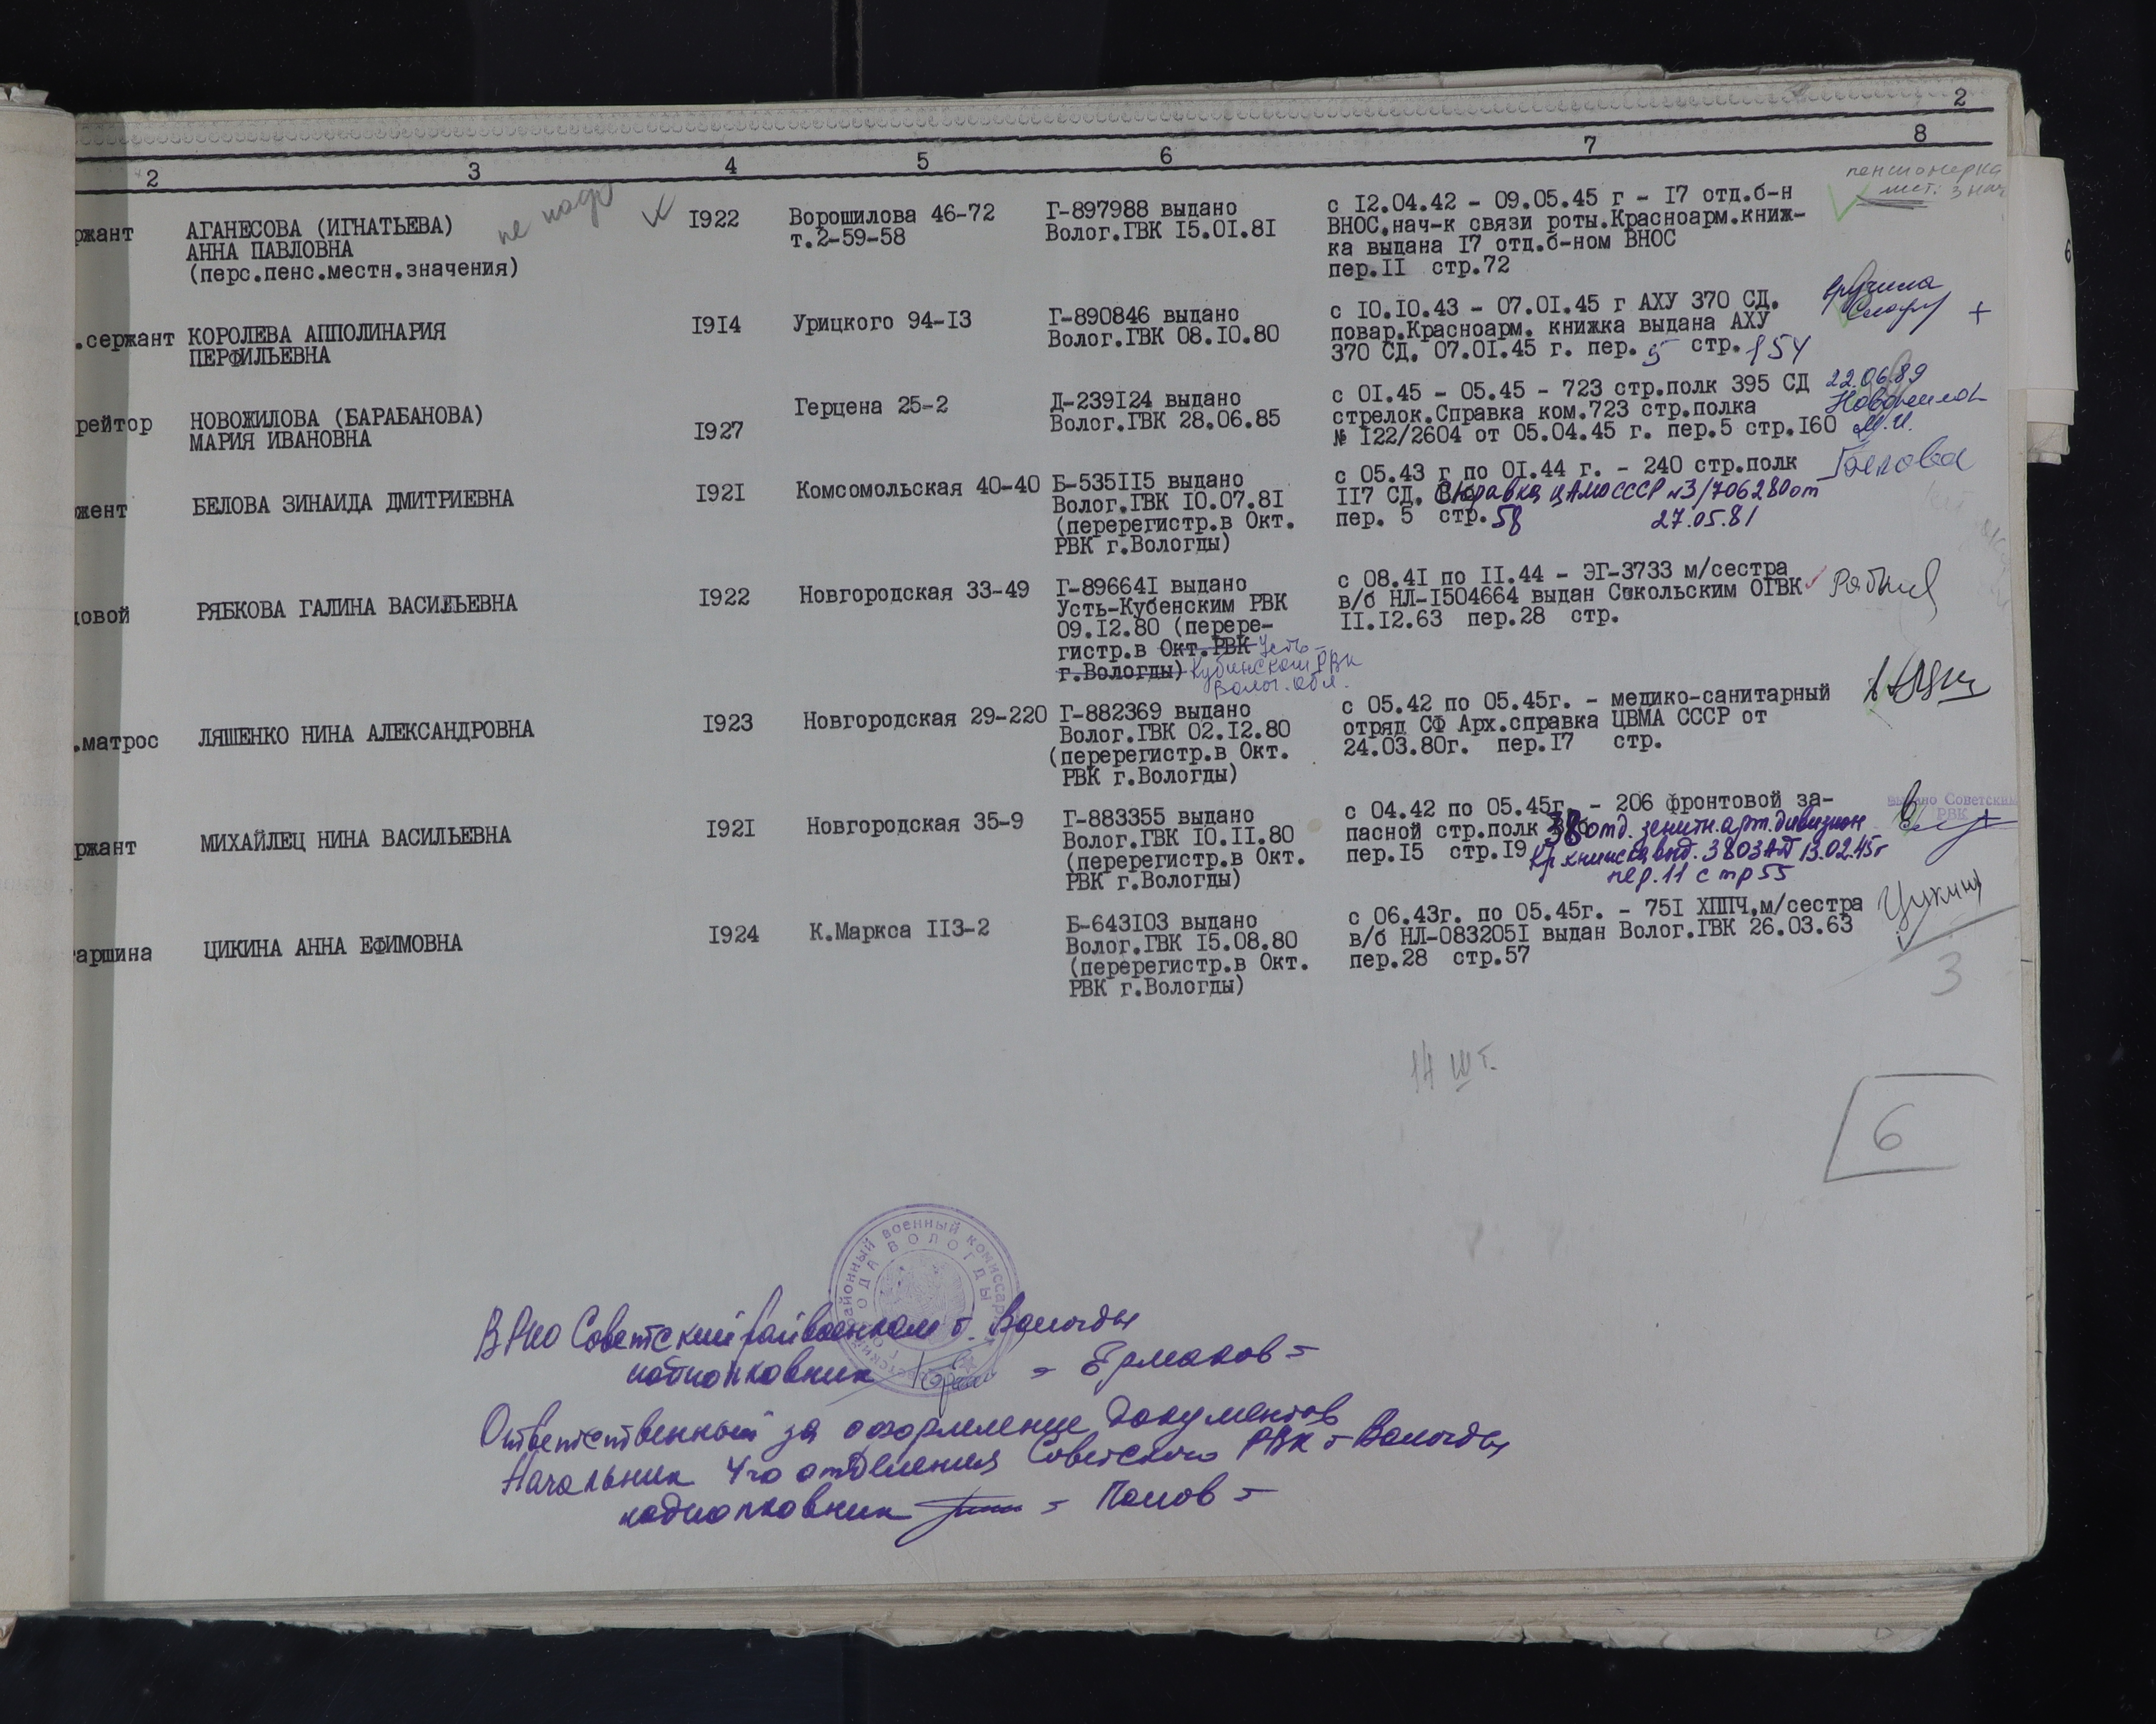 2
2 3 4 5 6 7 8
не надо
пенсионерка
мест. знач
ржант АГАНЕСОВА (ИГНАТЬЕВА) I922 Ворошилова 46-72 Г-897988 выдано с I2.04.42 - 09.05.45 г - I7 отд.б-н
АННА ПАВЛОВНА т.2-59-58 Волог.ГВК I5.0I.8I ВНОС,нач-к связи роты.Красноарм.книж-
(перс.пенс.местн.значения) ка выдана I7 отд.б-ном ВНОС
пер.II стр.72
.сержант КОРОЛЕВА АППОЛИНАРИЯ I9I4 Урицкого 94-I3 Г-890846 выдано с I0.I0.43 - 07.0I.45 г АХУ 370 СД. вручила
ПЕРФИЛЬЕВНА Волог.ГВК 08.I0.80 повар.Красноарм. книжка выдана АХУ +
370 СД. 07.0I.45 г. пер. 5 стр. 154
рейтор НОВОЖИЛОВА (БАРАБАНОВА) I927 Герцена 25-2 Д-239I24 выдано с 0I.45 - 05.45 - 723 стр.полк 395 СД 22.06.89
МАРИЯ ИВАНОВНА Волог.ГВК 28.06.85 стрелок.Справка ком.723 стр.полка Новожилова
№ I22/2604 от 05.04.45 г. пер.5 стр.I60 М.И.
жент БЕЛОВА ЗИНАИДА ДМИТРИЕВНА I92I Комсомольская 40-40 Б-535II5 выдано с 05.43 г по 0I.44 г. - 240 стр.полк Белова
Волог.ГВК I0.07.8I II7 СД. Справка ЦАМО СССР №3/706280 от
(перерегистр.в Окт. пер. 5 стр. 58 27.05.81
РВК г.Вологды)
довой РЯБКОВА ГАЛИНА ВАСИЛЬЕВНА I922 Новгородская 33-49 Г-89664I выдано с 08.4I по II.44 - ЭГ-3733 м/сестра
Усть-Кубенским РВК в/б НЛ-I504664 выдан Сокольским ОГВК
09.I2.80 (перере- II.I2.63 пер.28 стр.
гистр.в Окт.РВК Усть-
г.Вологды) Кубинском РВК
Волог. обл.
.матрос ЛЯШЕНКО НИНА АЛЕКСАНДРОВНА I923 Новгородская 29-220 Г-882369 выдано с 05.42 по 05.45г. - медико-санитарный
Волог.ГВК 02.I2.80 отряд СФ Арх.справка ЦВМА СССР от
(перерегистр.в Окт. 24.03.80г. пер.I7 стр.
РВК г.Вологды)
ржант МИХАЙЛЕЦ НИНА ВАСИЛЬЕВНА I92I Новгородская 35-9 Г-883355 выдано с 04.42 по 05.45г. - 206 фронтовой за- выдано Советским
Волог.ГВК I0.II.80 пасной стр.полк 38 отд. зенитн.арт.дивизион РВК +
(перерегистр.в Окт. пер.I5 стр.I9 Кр.книжка выд. 38ОЗАД 13.02.45г
РВК г.Вологды) пер.11 стр 55
таршина ЦИКИНА АННА ЕФИМОВНА I924 К.Маркса II3-2 Б-643I03 выдано с 06.43г. по 05.45г. - 75I ХППГ,м/сестра Цикина
Волог.ГВК I5.08.80 в/б НЛ-083205I выдан Волог.ГВК 26.03.63
(перерегистр.в Окт. пер.28 стр.57
РВК г.Вологды)
3
14 шт.
6
ВРИО Советский райвоенком г. Вологды
подполковник - Ермаков -
Ответственный за оформление документов
Начальник 4го отделения Советского РВК г Вологды
подполковник - Попов -